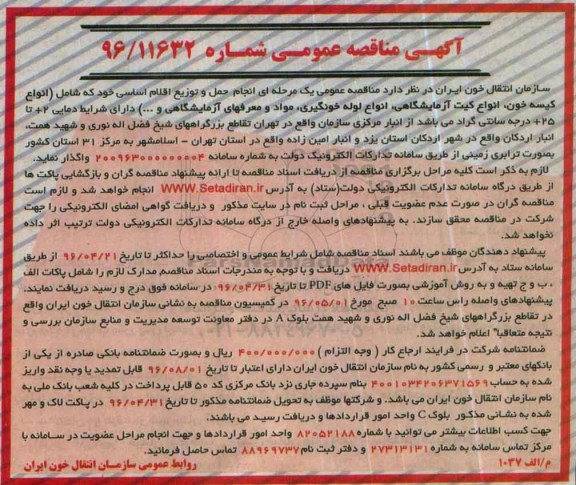 آگهی مناقصه عمومی شماره ۹۶/۱۱۶۳۲
سازمان انتقال خون ایران در نظر دارد مناقصه عمومی یک مرحله ای انجام حمل و توزیع اقلام اساسی خود که شامل (انواع
کیسه خون، انواع کیت آزمایشگاهی، انواع لوله خونگیری، مواد و معرفهای آزمایشگاهی و ...) دارای شرایط دمایی ۲+ تا
۲۵+ درجه سانتی گراد می باشد از انبار مرکزی سازمان واقع در تهران تقاطع بزرگراههای شیخ فضل اله نوری و شهید همت،
انبار اردکان واقع در شهر اردکان استان یزد و انبار امین زاده واقع در استان تهران - اسلامشهر به مرکز ۳۱ استان کشور
بصورت ترابری زمینی از طریق سامانه تدارکات الکترونیک دولت به شماره سامانه ۲۰۰۹۶۳۰۰۰۰۰۰۰۰۴ واگذار نماید.
لازم به ذکر است کلیه مراحل برگزاری مناقصه از دریافت اسناد مناقصه تا ارائه پیشنهاد مناقصه گران و بازگشایی پاکت ها
از طریق درگاه سامانه تدارکات الکترونیکی دولت(ستاد) به آدرس WWW.Setadiran.ir انجام خواهد شد و لازم است
مناقصه گران در صورت عدم عضویت قبلی ، مراحل ثبت نام در سایت مذکور و دریافت گواهی امضای الکترونیکی را جهت
شرکت در مناقصه محقق سازند. به پیشنهادهای واصله خارج از درگاه سامانه تدارکات الکترونیکی دولت ترتیب اثر داده
نخواهد شد.
پیشنهاد دهندگان موظف می باشند اسناد مناقصه شامل شرایط عمومی و اختصاصی را حداکثر تا تاریخ ۹۶/۰۴/۲۱ از طریق
سامانه ستاد به آدرس WWW.Setadiran.ir دریافت و با توجه به مندرجات اسناد مناقصه مدارک لازم را شامل پاکات الف
، ب و ج تهیه و به روش آموزشی بصورت فایل های PDF تا تاریخ ۹۶/۰۴/۳۱ در سامانه فوق درج و رسید دریافت نمایند.
پیشنهادهای واصله راس ساعت ۱۰ صبح مورخ ۹۶/۰۵/۰۱ در کمیسیون مناقصه به نشانی سازمان انتقال خون ایران واقع
در تقاطع بزرگراههای شیخ فضل اله نوری و شهید همت بلوک A در دفتر معاونت توسعه مدیریت و منابع سازمان بررسی و
نتیجه متعاقبا" اعلام خواهد شد.
ضمانتنامه شرکت در فرایند ارجاع کار ( وجه التزام ) ۴۰۰/۰۰۰/۰۰۰ ریال و بصورت ضمانتنامه بانکی صادره از یکی از
بانکهای معتبر و رسمی کشور به نام سازمان انتقال خون ایران دارای اعتبار تا تاریخ ۹۶/۰۸/۰۱ قابل تمدید یا وجه نقد واریز
شده به حساب ۴۰۰۱۰۳۴۲۰۶۳۷۱۵۶۹ بنام سپرده جاری نزد بانک مرکزی کد ۵۰ قابل پرداخت در کلیه شعب بانک ملی به
نام سازمان انتقال خون ایران می باشد. و شرکتها موظف به تحویل ضمانتنامه مذکور تا تاریخ ۹۶/۰۴/۳۱ در پاکت لاک و مهر
شده به نشانی مذکور بلوک C واحد امور قراردادها و دریافت رسید می باشند.
جهت کسب اطلاعات بیشتر می توانید با شماره ۸۲۰۵۲۱۸۸ واحد امور قراردادها و جهت انجام مراحل عضویت در سامانه با
مرکز تماس سامانه به شماره ۲۷۳۱۳۱۳۱ و دفتر ثبت نام ۸۸۹۶۹۷۳۷ تماس حاصل فرمائید.
م/الف ۱۰۳۷
روابط عمومی سازمان انتقال خون ایران